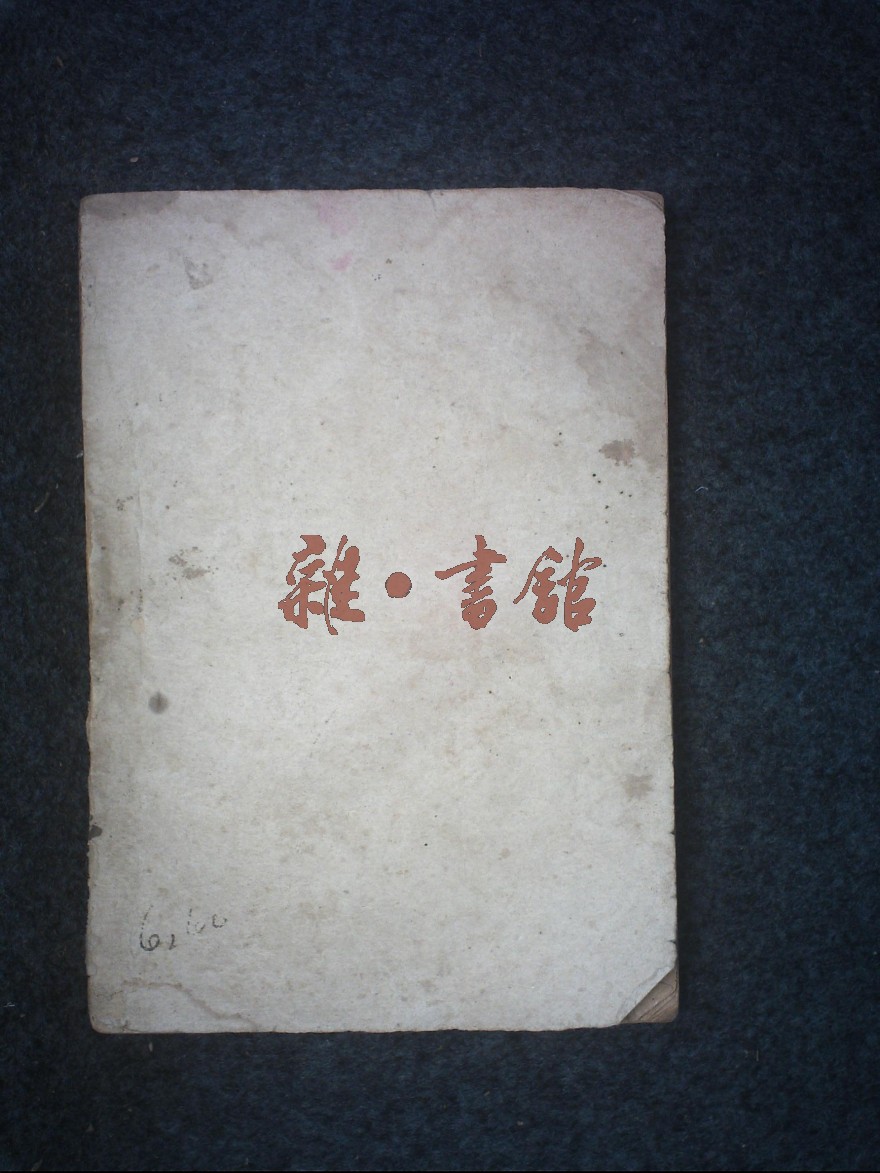 雜·書館
6,60